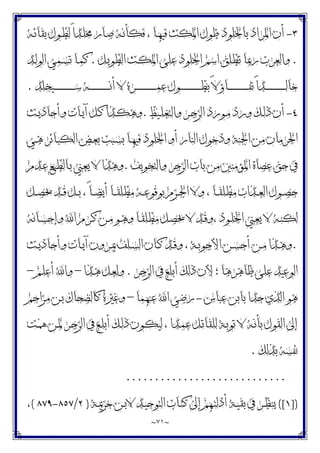 ٣- أن المراد بالخلود طول المكث فيها ، فكأنه صار مخلداً لطول بقائه
. والعرب ربما تطلق اسم الخلود على المكث الطويل . كما تسمي الولد
خالداً تفاؤلاً بطول عمره لا أنه يخلد .
٤- أن ذلك ورد مورد الزجر والتغليظ . وهكذا كل آيات وأحاديث
الحرمان من الجنة ودخول النار أو الخلود فيها بسبب بعض الكبائر هي
في حق عصاة المؤمنين من باب الزجر والتخويف . وهذا لا يعني بالطبع عدم
حصول العذاب مطلقاً ، ولا الجزم بوقوعه مطلقاً أيضاً ، بل قد يحصل
لكنه لا يعني الخلود ، وقد لا يحصل مطلقاً وهو من كرم الله وإحسانه
. وهذا من أحسن الأجوبة ، وقد كان السلف يمرون آيات وأحاديث
الوعيد على ظاهرها ؛ لأن ذلك أبلغ في الزجر . ولعل هذا – والله أعلم –
هو الذي حدا بابن عباس – رضي الله عنهما – وغيره كالضحاك بن مزاحم
إلى القول بأنه لا توبة للقاتل عمداً ، ليكون ذلك أبلغ في الزجر لمن همت
نفسه بذلك .
............................
([١]) ينظر في بقية أدلتهم إلى كتاب التوحيد لابن خزيمة ( ٢/ ٨٥٧-٨٧٩ ) ،
~٧١~